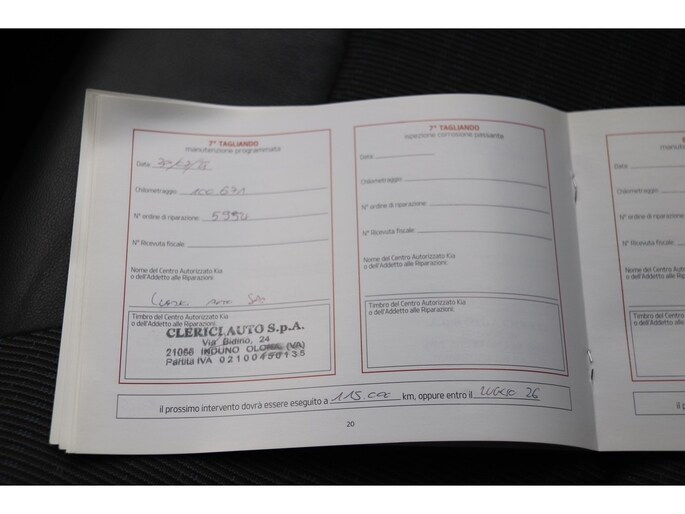 7° TAGLIANDO
manutenzione programmata
Data:
Chilometraggio:
N° ordine di riparazione: 5994
N° Ricevuta fiscale:
Nome del Centro Autorizzato Kia
o dell'Addetto alle Riparazioni:
Timbro del Centro Autorizzato Kia
o dell'Addetto alle Riparazioni:
CLERICI AUTO S.p.A.
Via Bidino, 24
21056 INDUNO OLONA (VA)
Partita IVA 02100450135
7° TAGLIANDO
ispezione corrosione passante
Data:
Chilometraggio:
N° ordine di riparazione:
N° Ricevuta fiscale:
Nome del Centro Autorizzato Kia
o dell'Addetto alle Riparazioni:
Timbro del Centro Autorizzato Kia
o dell'Addetto alle Riparazioni:
il prossimo intervento dovrà essere eseguito a 115.000 km, oppure entro il LUGLIO 26
20
Data:
Chilometraggio
N° ordine di ripara
N° Ricevuta fiscal
Nome del Centro
o dell'Addetto all
Timbro del Cent
o dell'Addetto a
il p